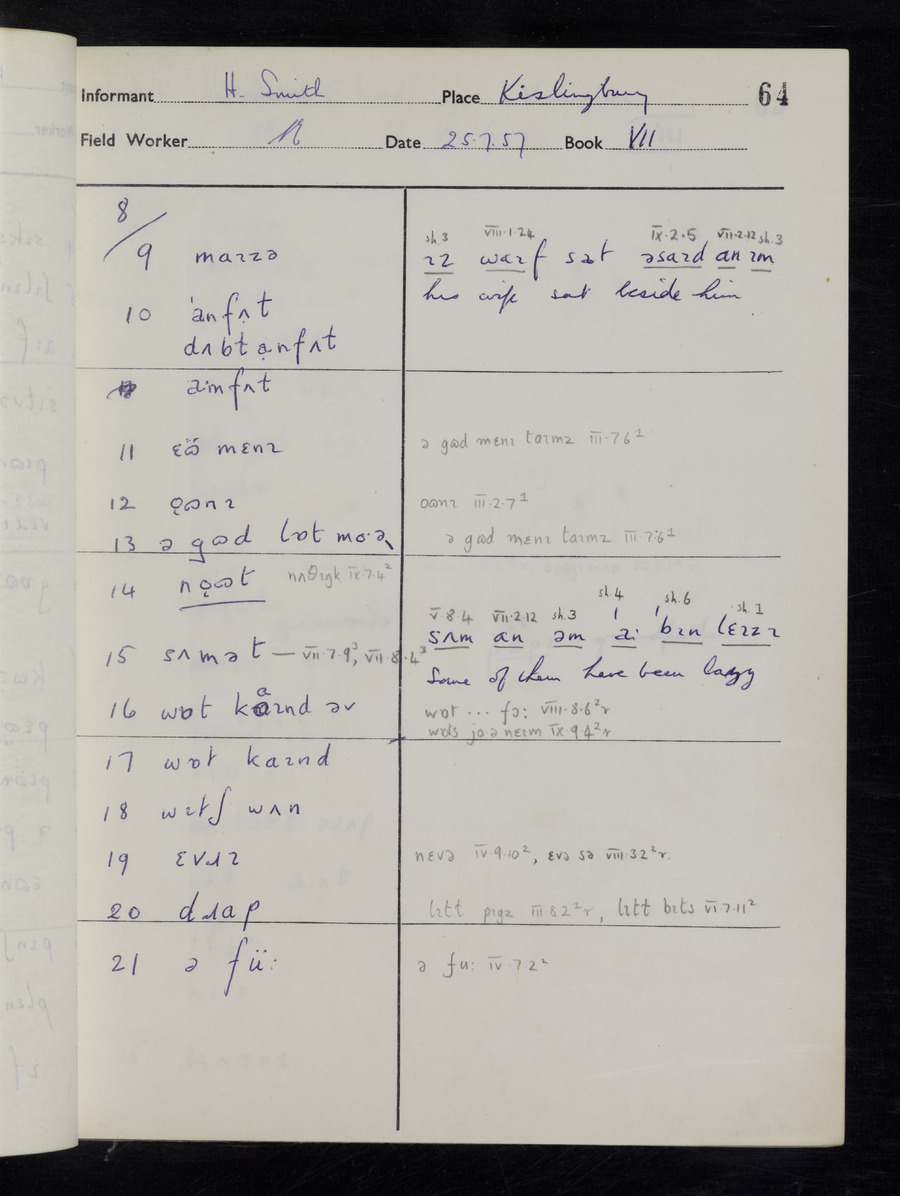 Informant H. Smith Place Kislingbury 64
Field Worker Date 25.7.57 Book VII
8/
9 maɪzə
sh.3 VIII·1·24 IX·2·5 VII·2·12 sh.3
ɪz waɪf sat əsaɪd an ɪm
his wife sat beside him
10 anfʌt
dʌbt anfʌt
amfʌt
11 mɛnɪ ə gɷd mɛnɪ taɪmz III·7·6¹
12 ǫɷnɪ oɷnɪ III·2·7¹
13 ə gɷd lɒt mo·ə ə gɷd mɛnɪ taɪmz III·7·6¹
14 nǫɷt nʌθɪgk IX·7·4²
V·8·4 VII·2·12 sh.3 sh.4 sh.6 sh.1
sʌm an əm aː bɪn lɛɪzɪ
15 sʌmət — VII·7·9³, VII·8·4³
Some of them have been lazy
16 wɒt kaɪnd əv wɒt ... fɔː VIII·8·6²r
wɒts jɔ·ə neɪm IX·9·4²r
17 wɒt kaɪnd
18 wɪtʃ wʌn
19 ɛvɹɪ nɛvə IV·9·10², ɛvə sə VIII·32²r.
20 dɹap lɪtt pɪgz III·8·2²r, lɪtt bɪts VI·7·11²
21 ə füː ə fuː IV·7·2²